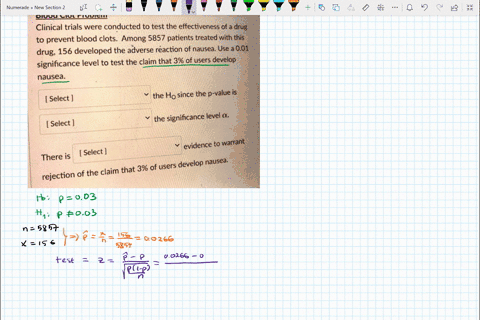 Numerade + New Section 2
Blood Clot Problem
Clinical trials were conducted to test the effectiveness of a drug
to prevent blood clots. Among 5857 patients treated with this
drug, 156 developed the adverse reaction of nausea. Use a 0.01
significance level to test the claim that 3% of users develop
nausea.
[ Select ] the H₀ since the p-value is
[ Select ] the significance level α.
There is [ Select ] evidence to warrant
rejection of the claim that 3% of users develop nausea.
Ho: p = 0.03
H₁: p ≠ 0.03
n = 5857
x = 156
} ⇒ p̂ = x/n = 156/5857 = 0.0266
test = z = (p̂ - p)/√(p(1-p)/n) = 0.0266 - 0